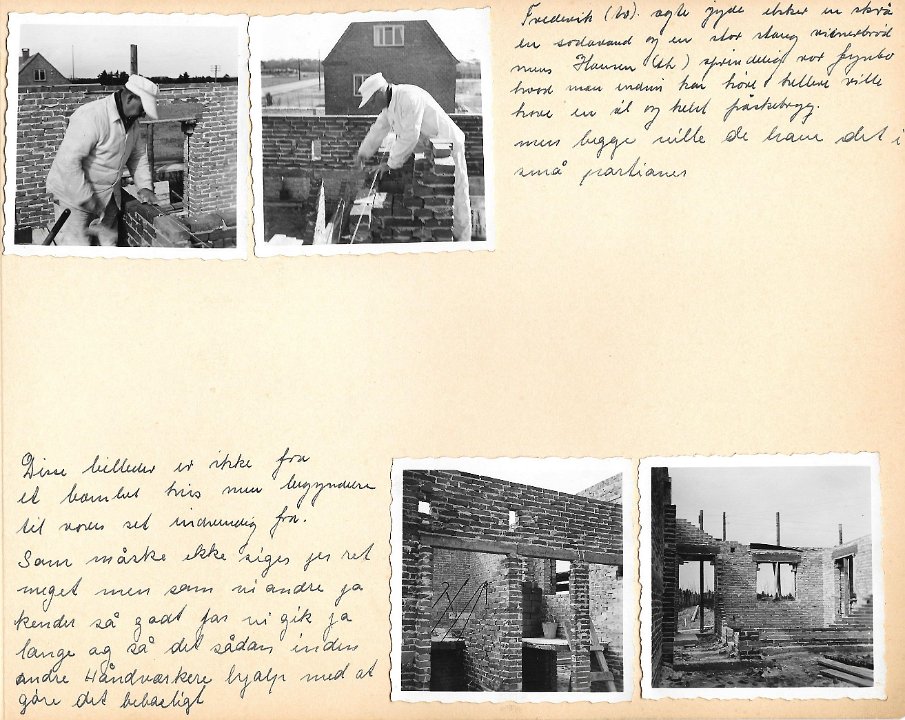 Frederik (tv). ægte jyde elsker en skrå
en sodavand og en stor stang wienerbrød
mens Hansen (th) oprindelig vor fynbo
hvad man endnu kan høre hellere ville
have en øl og helst påskebryg.
men begge ville de have det i
små portioner
Disse billeder er ikke fra
et bombet hus men begyndelse
til vores set indvendig fra.
Som måske ikke siges jer ret
meget men som vi andre jo
kender så godt for vi gik jo
længe og så det sådan inden
andre Håndværkere hjalp med at
gøre det beboeligt